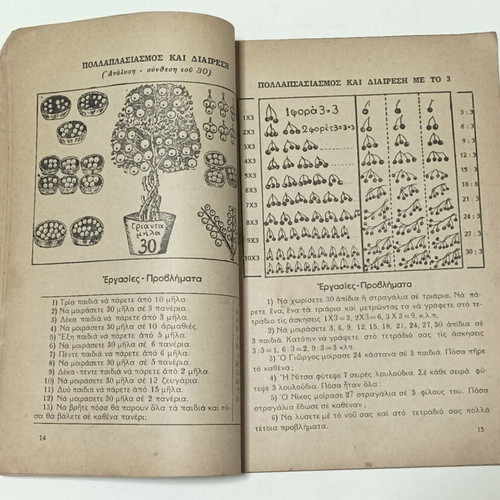 ΠΟΛΛΑΠΛΑΣΙΑΣΜΟΣ ΚΑΙ ΔΙΑΙΡΕΣΗ
(Ἀνάλυση - σύνθεση τοῦ 30)
Τριαντα
μῆλα
30
Ἐργασίες - Προβλήματα
1) Τρία παιδιά νά πάρετε ἀπό 10 μῆλα.
2) Νά μοιράσετε 30 μῆλα σέ 3 πανέρια.
3) Δέκα παιδιά νά πάρετε ἀπό 3 μῆλα.
4) Νά μοιράσετε 30 μῆλα σέ 10 ἁρμαθιές.
5) Ἕξη παιδιά νά πάρετε ἀπό 5 μῆλα.
6) Νά μοιράσετε 30 μῆλα σέ 6 πανέρια.
7) Πέντε παιδιά νά πάρετε ἀπό 6 μῆλα.
8) Νά μοιράσετε 30 μῆλα σέ 5 πανέρια.
9) Δέκα-πέντε παιδιά νά πάρετε ἀπό 2 μῆλα.
10) Νά μοιράσετε 30 μῆλα σέ 12 ζευγάρια.
11) Δυό παιδιά νά πάρετε ἀπό 15 μῆλα.
12) Νά μοιράσετε 30 μῆλα σέ 2 πανέρια.
13) Νά βρῆτε πόσα θά παρουν ὅλα τά παιδιά καί πό-
σα θά βάλετε σέ καθένα πανέρι;
14
ΠΟΛΛΑΠΛΑΣΙΑΣΜΟΣ ΚΑΙ ΔΙΑΙΡΕΣΗ ΜΕ ΤΟ 3
1X3 1 φορά 3=3 3 : 3
2X3 2 φορές 3=3+3 6 : 3
3X3 9 : 3
4X3 12 : 3
5X3 15 : 3
6X3 18 : 3
7X3 21 : 3
8X3 24 : 3
9X3 27 : 3
10X3 30 : 3
Ἐργασίες - Προβλήματα
1) Νά χωρίσετε 30 ἀπίδια ἤ στραγάλια σέ τριάρια. Νά πά-
ρετε ἕνα, ἕνα τά τριάρια καί μετρώντας τα νά γράψετε στό τε-
τράδιο τίς ἀσκήσεις 1Χ3=3, 2Χ3=6, 3Χ3=9, κ.λ.π.
2) Νά μοιράσετε 3, 6, 9, 12, 15, 18, 21, 24, 27, 30 ἀπίδια σέ
3 παιδιά. Κατόπιν νά γράψετε στό τετράδιό σας τίς ἀσκήσεις
3:3=1, 6:3=2, 9:3=3 κ.λ.π.
3) Ὁ Γιῶργος μοίρασε 24 κάστανα σέ 3 παιδιά. Πόσα πῆρε
τό καθένα;
4) Ἡ Νίτσα φύτεψε 7 σειρές λουλούδια. Σέ κάθε σειρά φύ-
τεψε 3 λουλούδια. Πόσα ἦταν ὅλα;
5) Ὁ Νίκος μοίρασε 27 στραγάλια σέ 3 φίλους του. Πόσα
στραγάλια ἔδωσε σέ καθέναν;
6) Νά λύσετε μέ τό νοῦ σας καί στό τετράδιό σας πολλά
τέτοια προβλήματα.
15